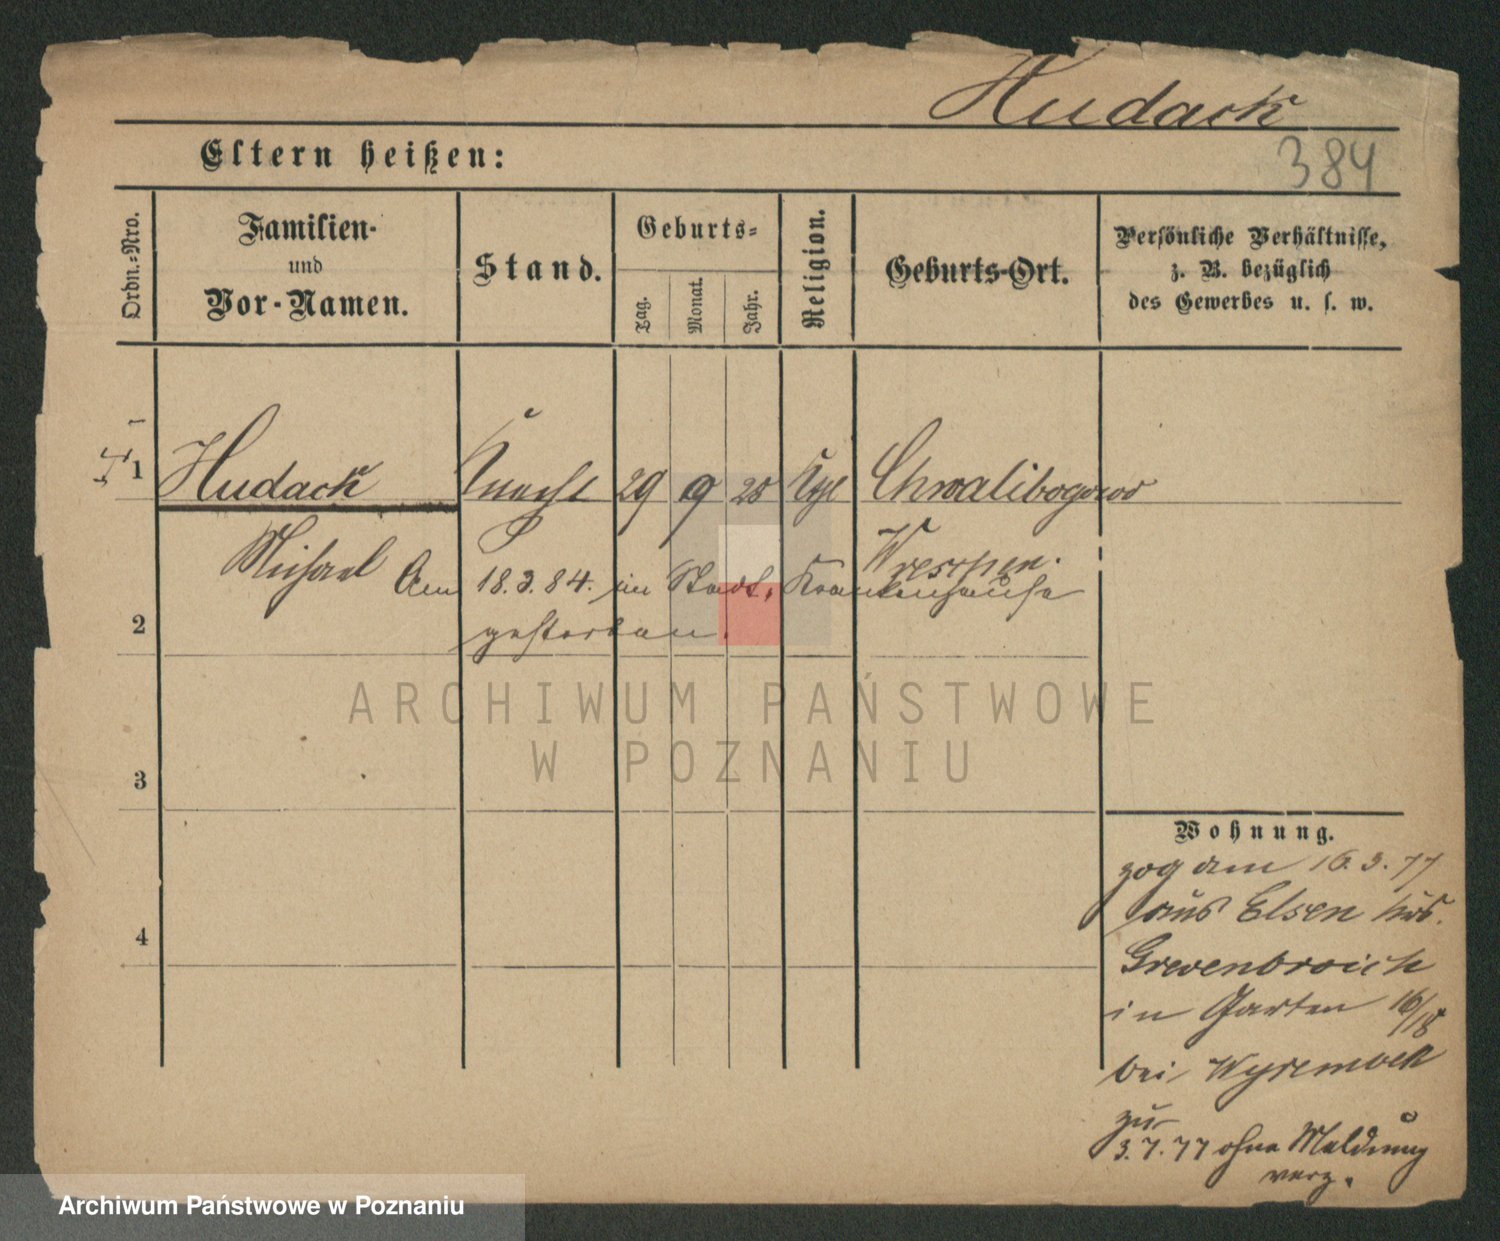 Hudack
384
Eltern heißen:
Ordn.-Nro.
Familien-
und
Vor-Namen.
Stand.
Geburts-
Tag.
Monat.
Jahr.
Religion.
Geburts-Ort.
Persönliche Verhältnisse,
z. B. bezüglich
des Gewerbes u. s. w.
1 Hudack Knecht 29 9 28 Chwalibogowo
Michael Wreschen.
Am 18.3.84. im Stadt. Krankenhause
2 gestorben.
ARCHIWUM PAŃSTWOWE
W POZNANIU
3
Wohnung.
zog am 16.3.77
aus Elsen
4
Grevenbroich
in Garten 16/18
bei
zu
3.7.77 ohne Meldung
verz.
Archiwum Państwowe w Poznaniu